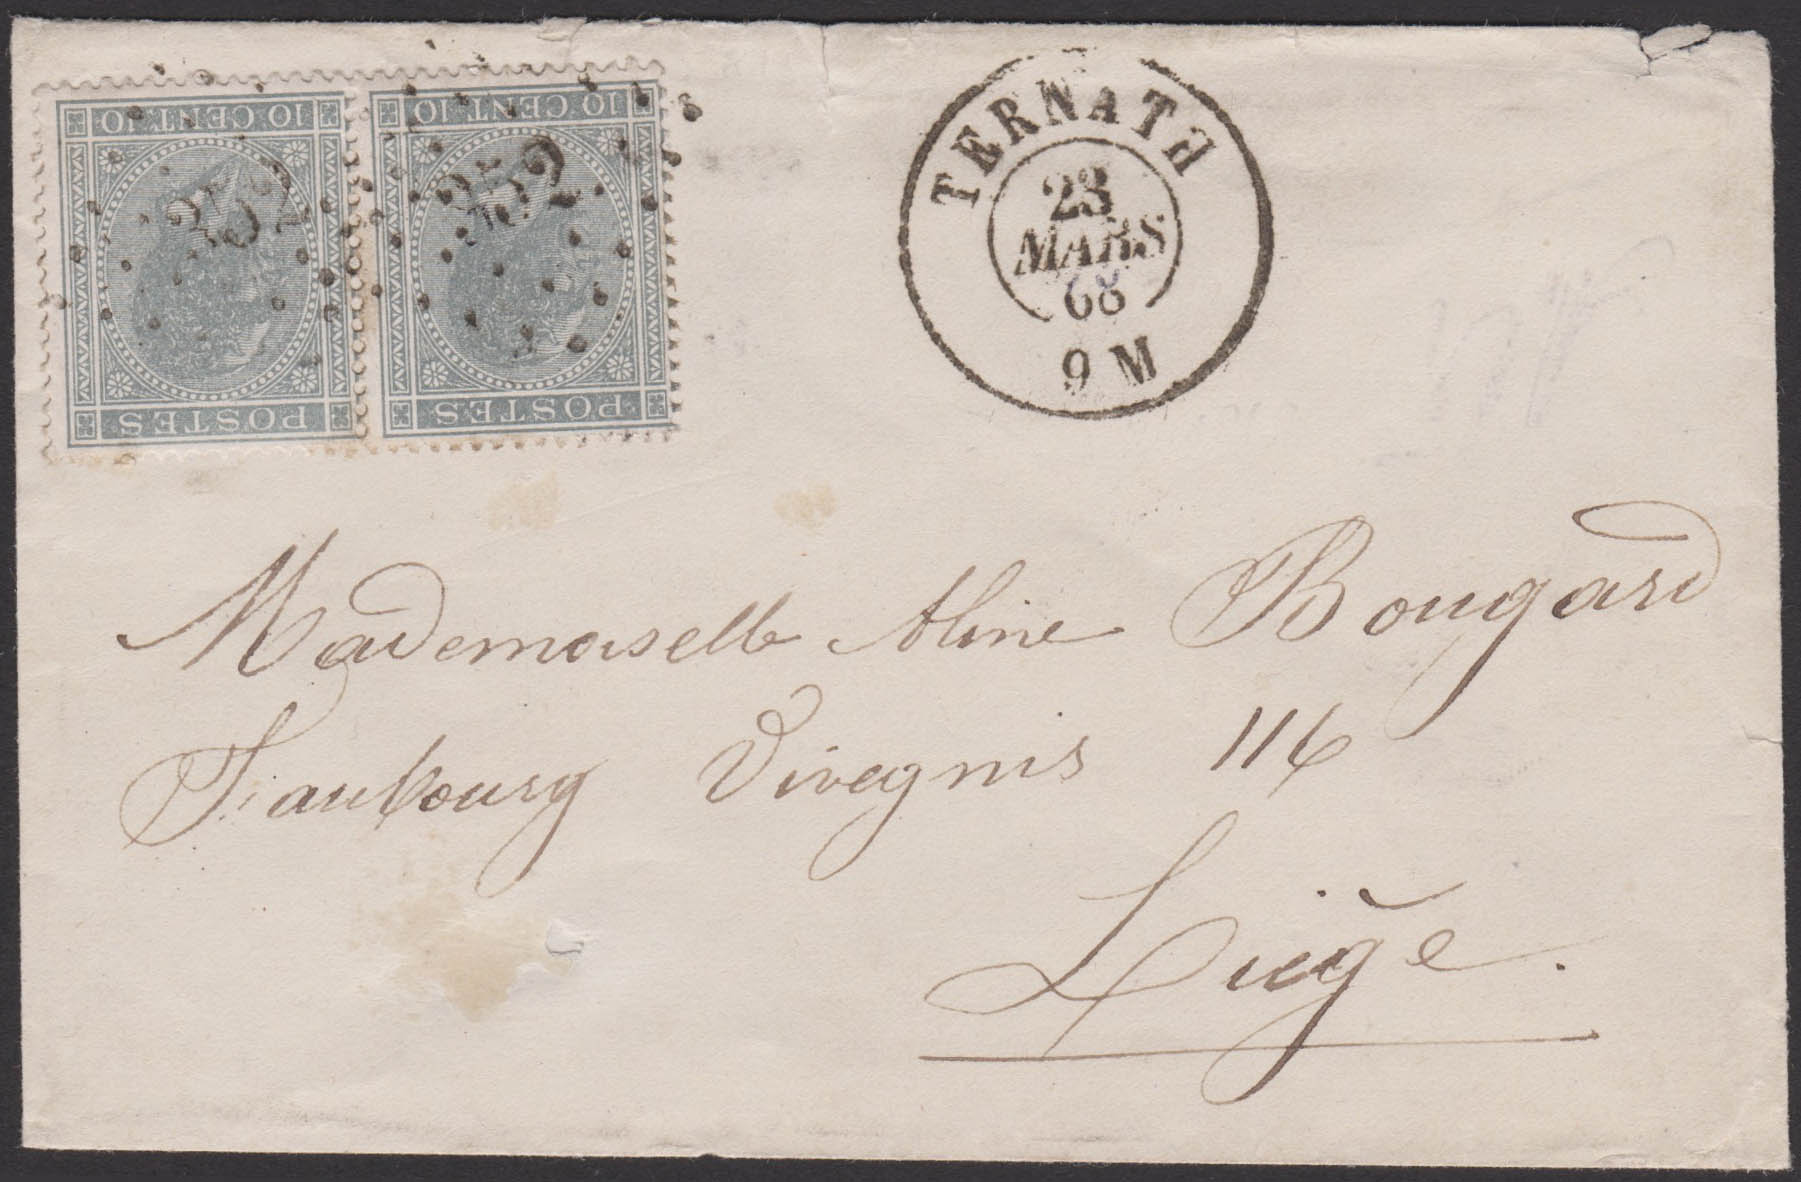 10 CENT. 10
10 CENT. 10
352
352
POSTES
POSTES
TERNATH
23
MARS
68
9 M
Mademoiselle Aline Bougard
Faubourg Vivegnis 116
Liège.